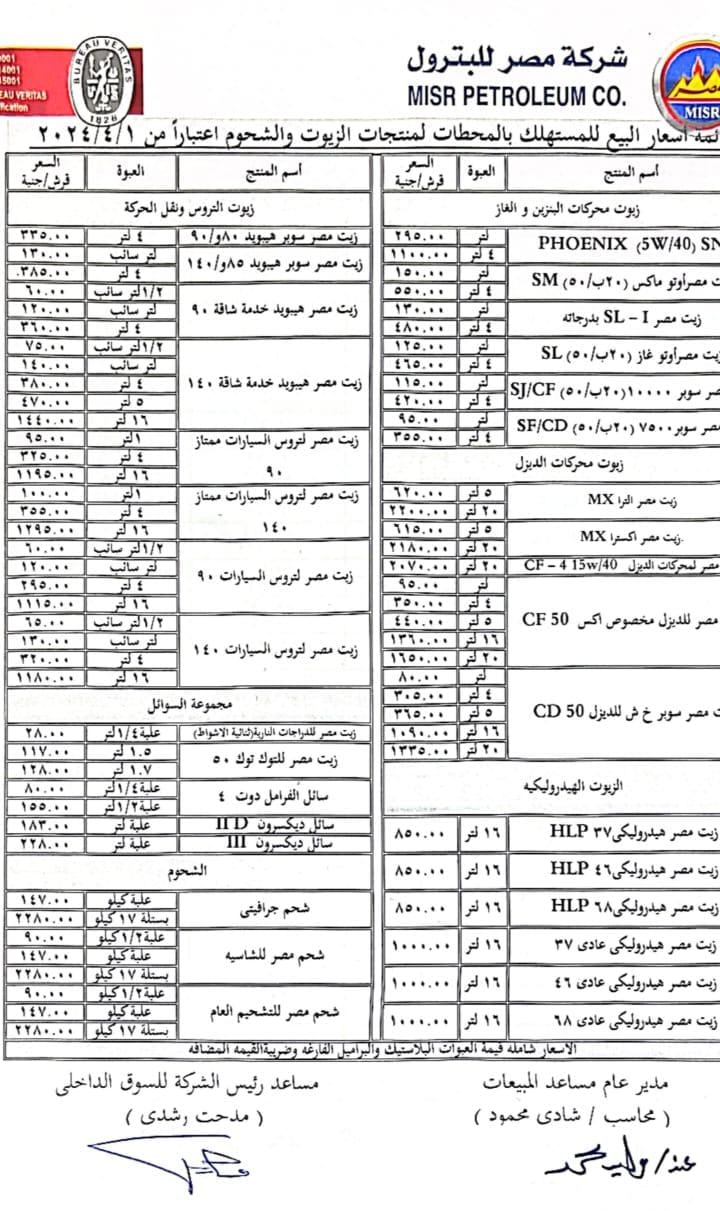 شركة مصر للبترول
MISR PETROLEUM CO.
MISR
BUREAU VERITAS
1828
9001
14001
45001
EAU VERITAS
fication
ئمة أسعار البيع للمستهلك بالمحطات لمنتجات الزيوت والشحوم اعتباراً من ٢٠٢٤/٤/١
أسم المنتج العبوة السعر قرش/جنية
زيوت محركات البنزين و الغاز
PHOENIX (5W/40) SN
لتر ٢٩٥.٠٠
٤ لتر ١١٠٠.٠٠
ت مصرأوتو ماكس (٢٠ب/٥٠) SM
لتر ١٥٠.٠٠
٤ لتر ٥٥٠.٠٠
زيت مصر SL – I بدرجاته
لتر ١٣٠.٠٠
٤ لتر ٤٨٠.٠٠
زيت مصرأوتو غاز (٢٠ب/٥٠) SL
لتر ١٢٥.٠٠
٤ لتر ٤٦٥.٠٠
صر سوبر ١٠٠٠٠(٢٠ب/٥٠) SJ/CF
لتر ١١٥.٠٠
٤ لتر ٤٢٠.٠٠
مصر سوبر٧٥٠٠ (٢٠ب/٥٠) SF/CD
لتر ٩٥.٠٠
٤ لتر ٣٥٥.٠٠
زيوت محركات الديزل
زيت مصر الترا MX
٥ لتر ٦٢٠.٠٠
٢٠ لتر ٢٢٠٠.٠٠
زيت مصر اكسترا MX.
٥ لتر ٦١٥.٠٠
٢٠ لتر ٢١٨٠.٠٠
مصر لمحركات الديزل CF – 4 15w/40 ٢٠ لتر ٢٠٧٠.٠٠
مصر للديزل مخصوص اكس CF 50
لتر ٩٥.٠٠
٤ لتر ٣٥٠.٠٠
٥ لتر ٤٤٠.٠٠
١٦ لتر ١٣٦٠.٠٠
٢٠ لتر ١٦٥٠.٠٠
ت مصر سوبر خ ش للديزل CD 50
لتر ٨٠.٠٠
٤ لتر ٣٠٥.٠٠
٥ لتر ٣٦٥.٠٠
١٦ لتر ١٠٩٠.٠٠
٢٠ لتر ١٣٣٥.٠٠
الزيوت الهيدروليكيه
زيت مصر هيدروليكى٣٧ HLP ١٦ لتر ٨٥٠.٠٠
زيت مصر هيدروليكى٤٦ HLP ١٦ لتر ٨٥٠.٠٠
زيت مصر هيدروليكى٦٨ HLP ١٦ لتر ٨٥٠.٠٠
زيت مصر هيدروليكى عادى ٣٧ ١٦ لتر ١٠٠٠.٠٠
زيت مصر هيدروليكى عادى ٤٦ ١٦ لتر ١٠٠٠.٠٠
زيت مصر هيدروليكى عادى ٦٨ ١٦ لتر ١٠٠٠.٠٠
أسم المنتج العبوة السعر قرش/جنية
زيوت التروس ونقل الحركة
زيت مصر سوبر هيبويد ٨٠و/٩٠ ٤ لتر ٣٣٥.٠٠
زيت مصر سوبر هيبويد ٨٥و/١٤٠
لتر سائب ١٣٠.٠٠
٤ لتر ٣٨٥.٠٠.
زيت مصر هيبويد خدمة شاقة ٩٠
١/٢لتر سائب ٦٠.٠٠
لتر سائب ١٢٠.٠٠
٤ لتر ٣٦٠.٠٠
زيت مصر هيبويد خدمة شاقة ١٤٠
١/٢لتر سائب ٧٥.٠٠
لتر سائب ١٤٠.٠٠
٤ لتر ٣٨٠.٠٠
٥ لتر ٤٧٠.٠٠
١٦ لتر ١٤٤٠.٠٠
زيت مصر لتروس السيارات ممتاز ٩٠
١لتر ٩٥.٠٠
٤ لتر ٣٢٥.٠٠
١٦ لتر ١١٩٥.٠٠
زيت مصر لتروس السيارات ممتاز ١٤٠
١لتر ١٠٠.٠٠
٤ لتر ٣٥٥.٠٠
١٦ لتر ١٢٩٥.٠٠
زيت مصر لتروس السيارات ٩٠
١/٢لتر سائب ٦٠.٠٠
لتر سائب ١٢٠.٠٠
٤ لتر ٢٩٥.٠٠
١٦ لتر ١١١٥.٠٠
زيت مصر لتروس السيارات ١٤٠
١/٢لتر سائب ٦٥.٠٠
لتر سائب ١٣٠.٠٠
٤ لتر ٣٢٠.٠٠
١٦ لتر ١١٨٠.٠٠
مجموعة السوائل
زيت مصر للدراجات النارية(ثنائية الاشواط) علبة١/٤لتر ٢٨.٠٠
زيت مصر للتوك توك ٥٠
١.٥ لتر ١١٧.٠٠
١.٧ لتر ١٢٨.٠٠
سائل الفرامل دوت ٤
علبة١/٤لتر ٨٠.٠٠
علبة١/٢لتر ١٥٥.٠٠
سائل ديكسرون II D علبة لتر ١٨٣.٠٠
سائل ديكسرون III علبة لتر ٢٢٨.٠٠
الشحوم
شحم جرافيتى
علبة كيلو ١٤٧.٠٠
بستلة ١٧ كيلو ٢٢٨٠.٠٠
شحم مصر للشاسيه
علبة١/٢كيلو ٩٠.٠٠
علبة كيلو ١٤٧.٠٠
بستلة ١٧ كيلو ٢٢٨٠.٠٠
شحم مصر للتشحيم العام
علبة١/٢كيلو ٩٠.٠٠
علبة كيلو ١٤٧.٠٠
بستلة ١٧ كيلو ٢٢٨٠.٠٠
الاسعار شامله قيمة العبوات البلاستيك والبراميل الفارغه وضريبةالقيمه المضافه
مدير عام مساعد المبيعات
( محاسب / شادى محمود )
عنه/ وليد محمد
مساعد رئيس الشركة للسوق الداخلى
( مدحت رشدى )